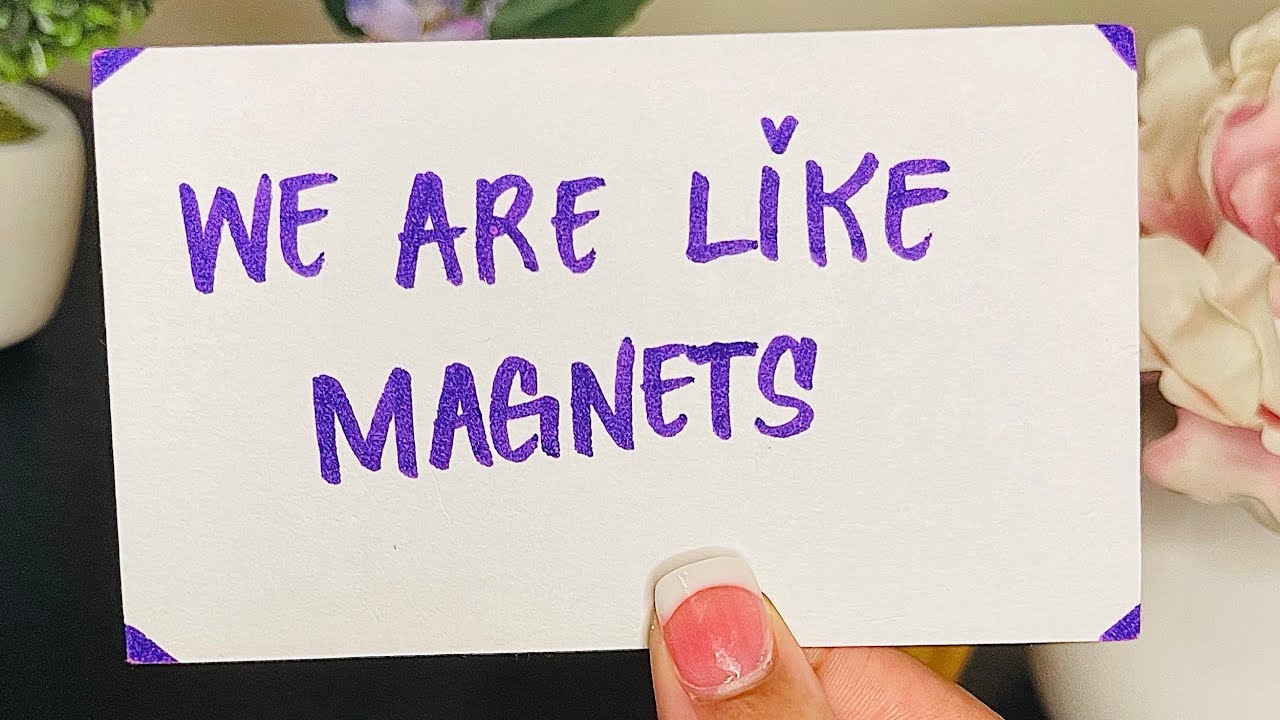 WE ARE LIKE
MAGNETS